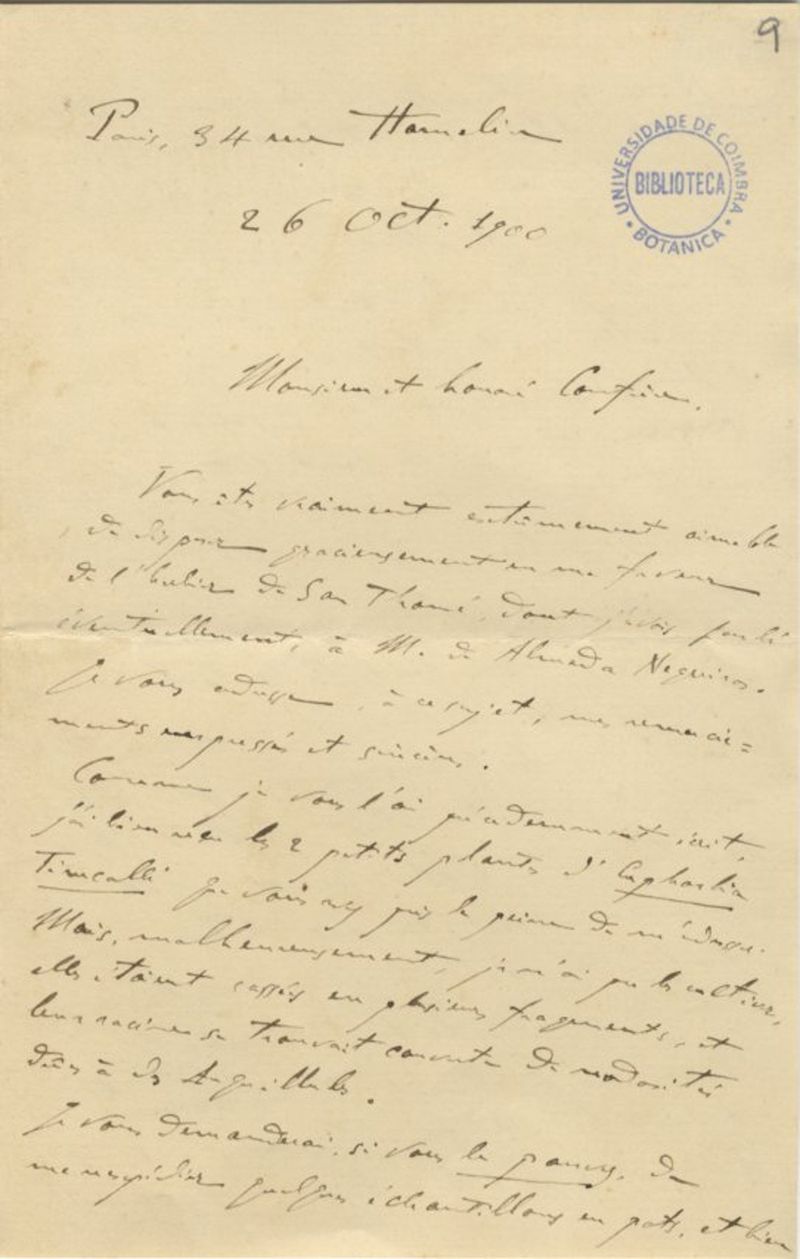 9
Paris, 34 rue Hamelin
UNIVERSIDADE DE COIMBRA
BIBLIOTECA
BOTANICA
26 Oct. 1900
Monsieur et honoré Confrère,
Vous êtes vraiment extrêmement aimable
de disposer gracieusement en ma faveur
de l'herbier de San Thomé, dont j'avais parlé
éventuellement, à M. de Almada Negreiros.
Je vous adresse, à ce sujet, mes remercie=
ments empressés et sincères.
Comme je vous l'ai précédemment écrit,
j'ai bien reçu les 2 petits plants d'Euphorbia
Tirucalli que vous avez pris la peine de m'adresser.
Mais, malheureusement, je n'ai pu les cultiver,
elles étaient cassées en plusieurs fragments, et
leur racine se trouvait couverte de nodosités
dûes à des Anguillules.
Je vous demanderai, si vous le pouvez, de
m'expédier quelques échantillons en pots, et bien